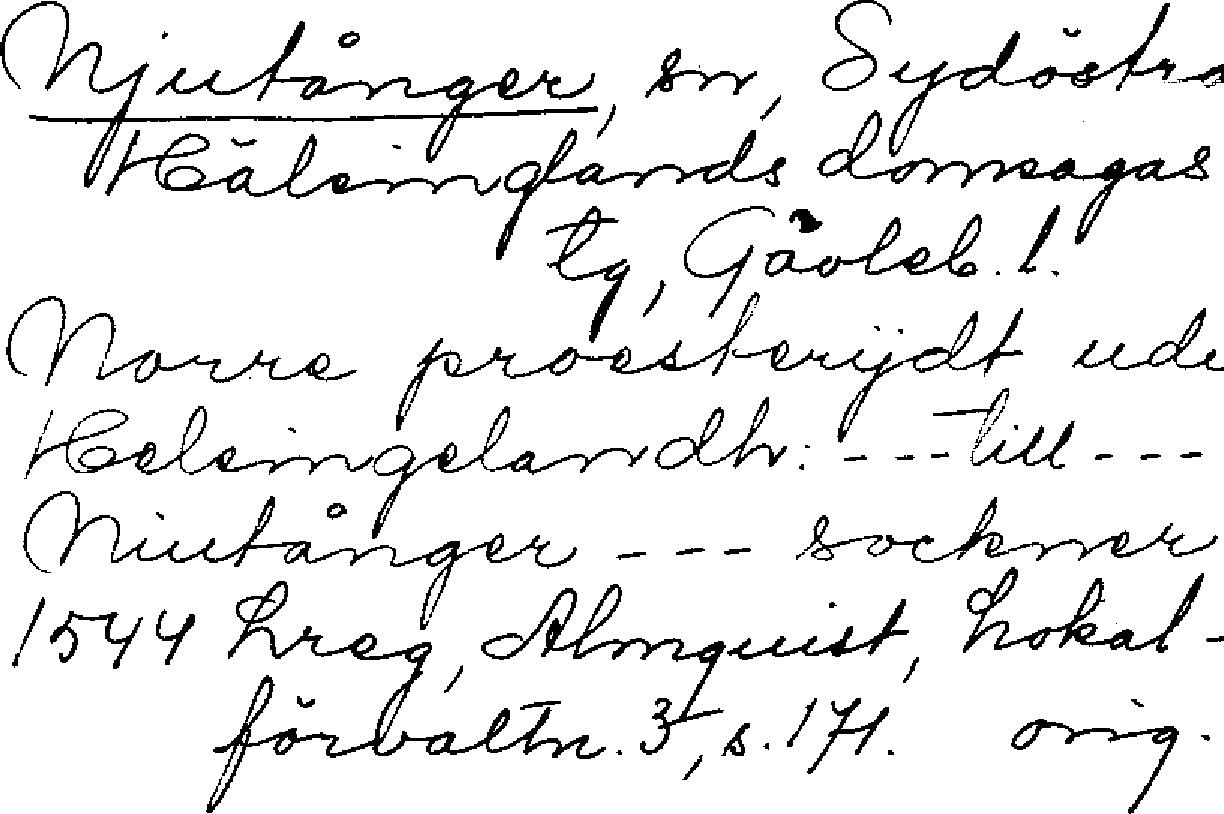 Njutånger, sn, Sydöstra
Hälsinglands domsagas
tg, Gävleb. l.
Norre proesterijdt udi
Helsingelandh: --- till ---
Niutånger --- sockner
1544 Lreg, Almquist, Lokal-
förvaltn. 3, s. 171. orig.